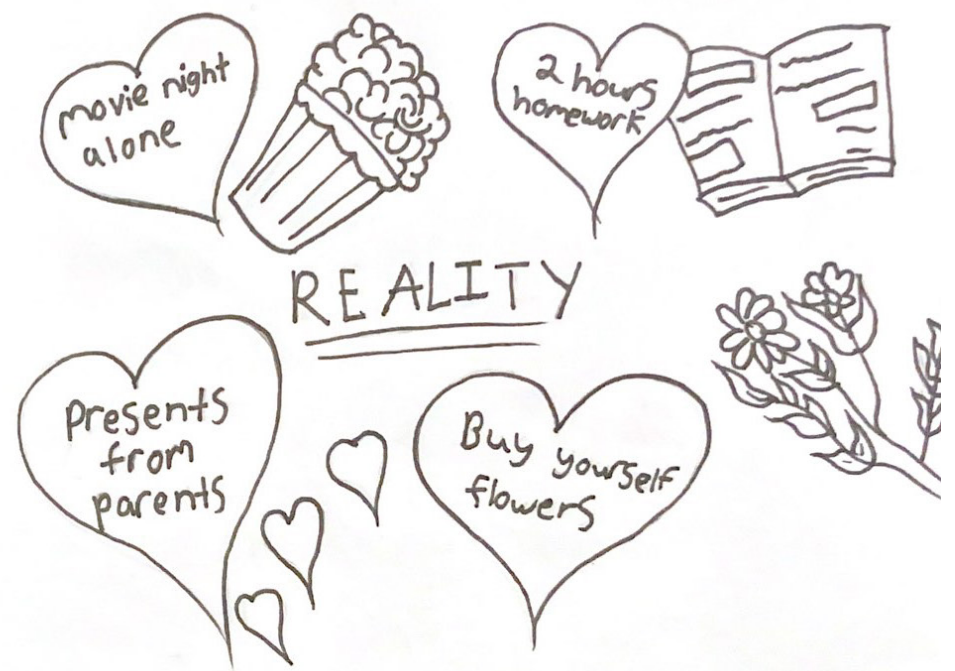 movie night
alone
2 hours
homework
REALITY
presents
from
parents
Buy yourself
flowers